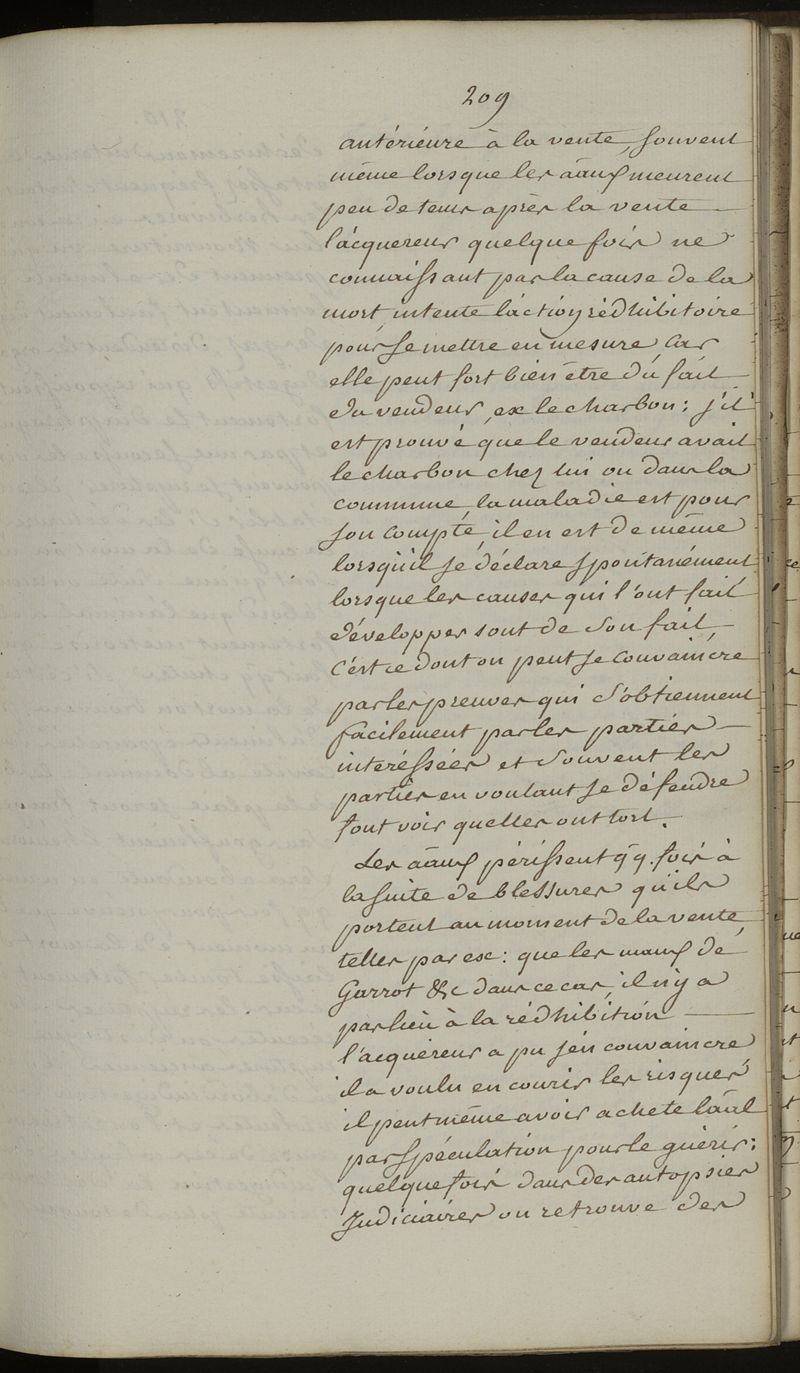 209
antérieure à la vente, souvent
même lorsque les aāux meurent
peu de tems après la vente —
l'acquereur quelque fois ne
connaissant pas la cause de la
mort intente l'action rédhibitoire
pour se mettre en mesure, car
elle peut fort bien être du fait —
du vendeur, ex le charbon; s'il
est prouvé que le vendeur avait
le charbon chez lui ou dans la
commune, la maladie est pour
son compte, il en est de même
lorsqu'il se déclare spontanément
lorsque les causes qui l'ont fait
développer sont de son fait —
c'est ce dont on peut se convaincre
par les preuves qui s'obtiennent
facilement par les parties —
intéréssées et souvent les
parties en voulant se défendre
font voir quelles ont tort.
Les aāux périssent qq. fois à
la suite de blessures qu'ils
portent au moment de la vente,
telles par ex: que les maux de
Garrot &c dans ce cas, il n'y a
pas lieu à la rédhibition —
l'acquéreur a pu s'en convaincre,
il a voulu en courir les risques
il peut même avoir acheté l'aāl
par spéculation pour le guérir;
quelque fois dans des autopsies
Judiciaires on retrouve des